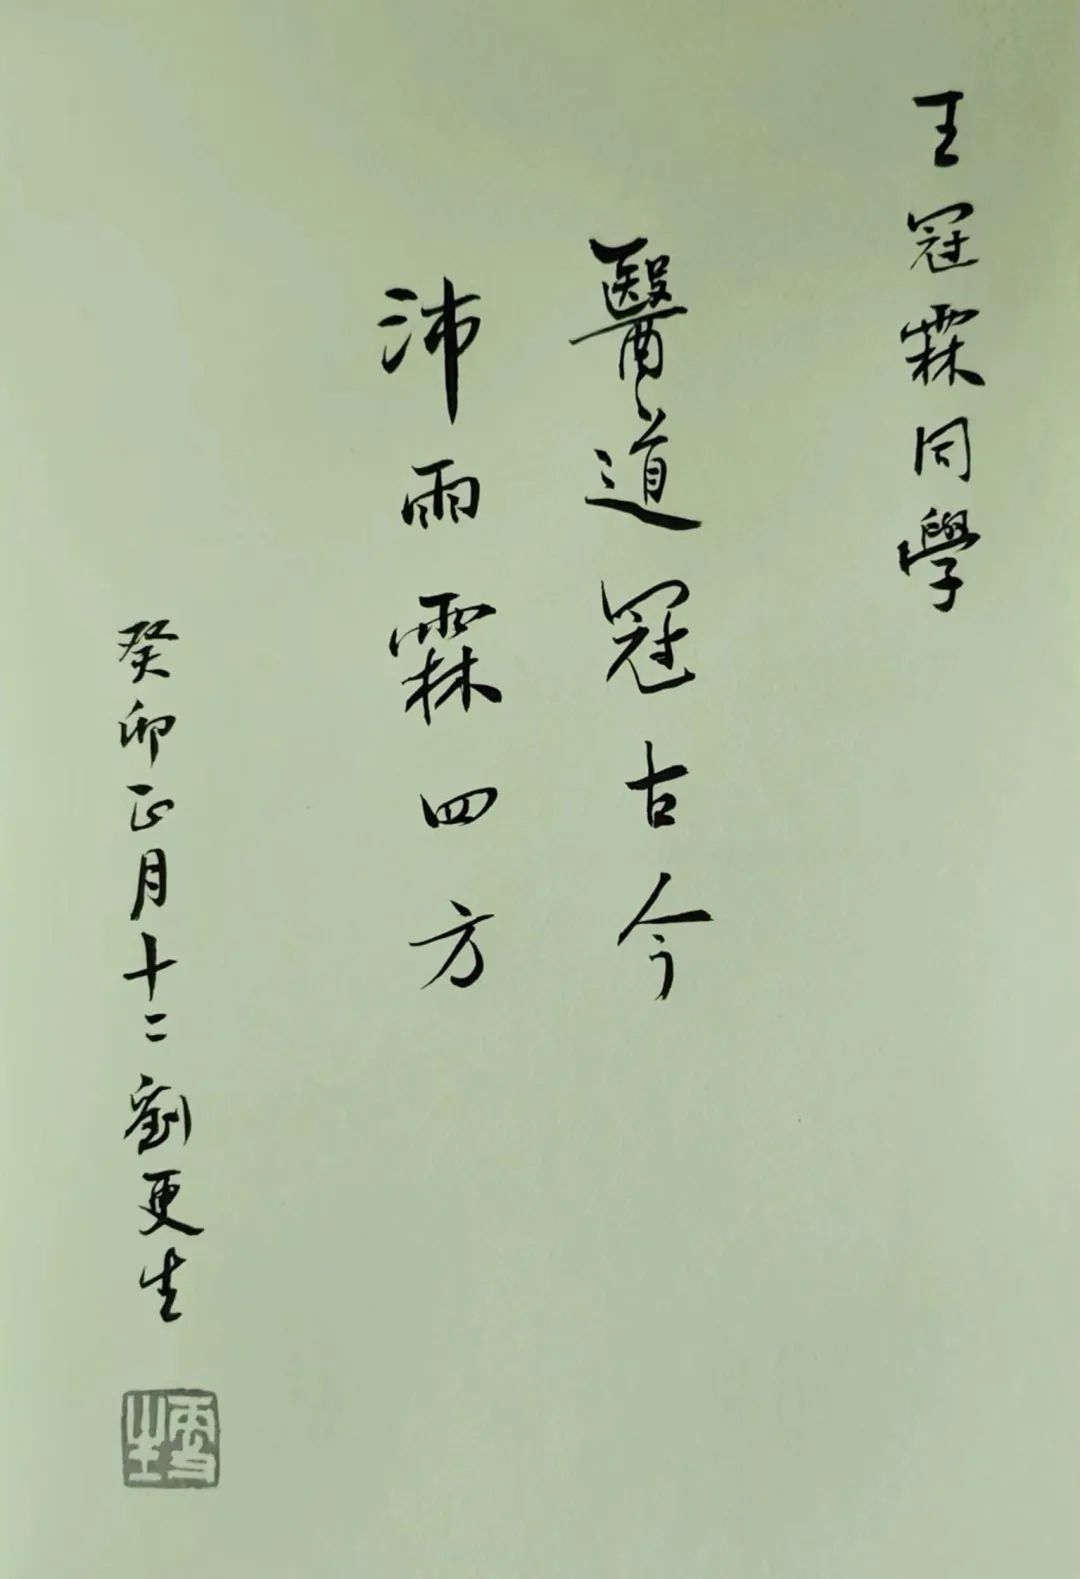 王冠霖同學
醫道冠古今
沛雨霖四方
癸卯正月十二劉更生
更生